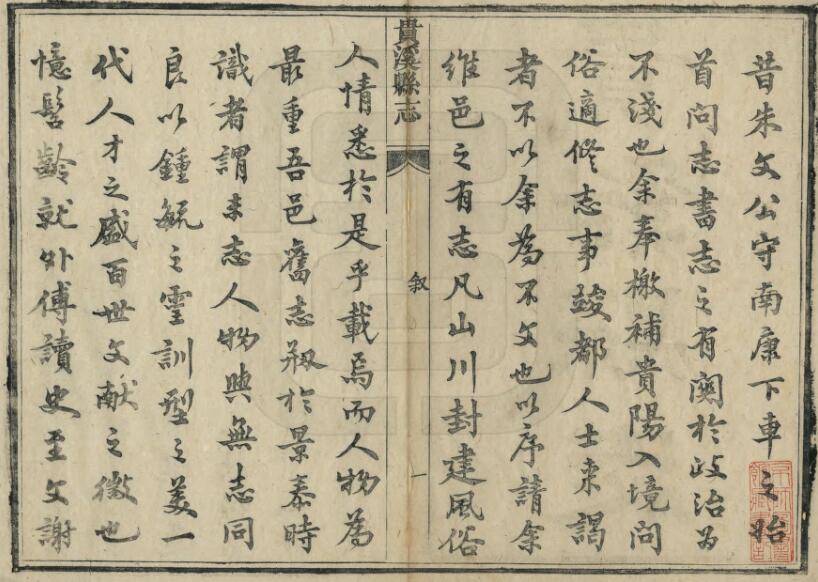 昔朱文公守南康下車之始
首問志書志之有關於政治為
不淺也余奉檄補貴陽入境問
俗適修志事竣都人士來謁
者不以余為不文也以序請余
維邑之有志凡山川封建風俗
貴溪縣志
叙
一
人情悉於是乎載焉而人物為
最重吾邑舊志刱於景泰時
識者謂志人物與無志同
良以鍾毓之靈訓型之美一
代人才之盛百世文献之徵也
憶髫齡就外傅讀史至文謝